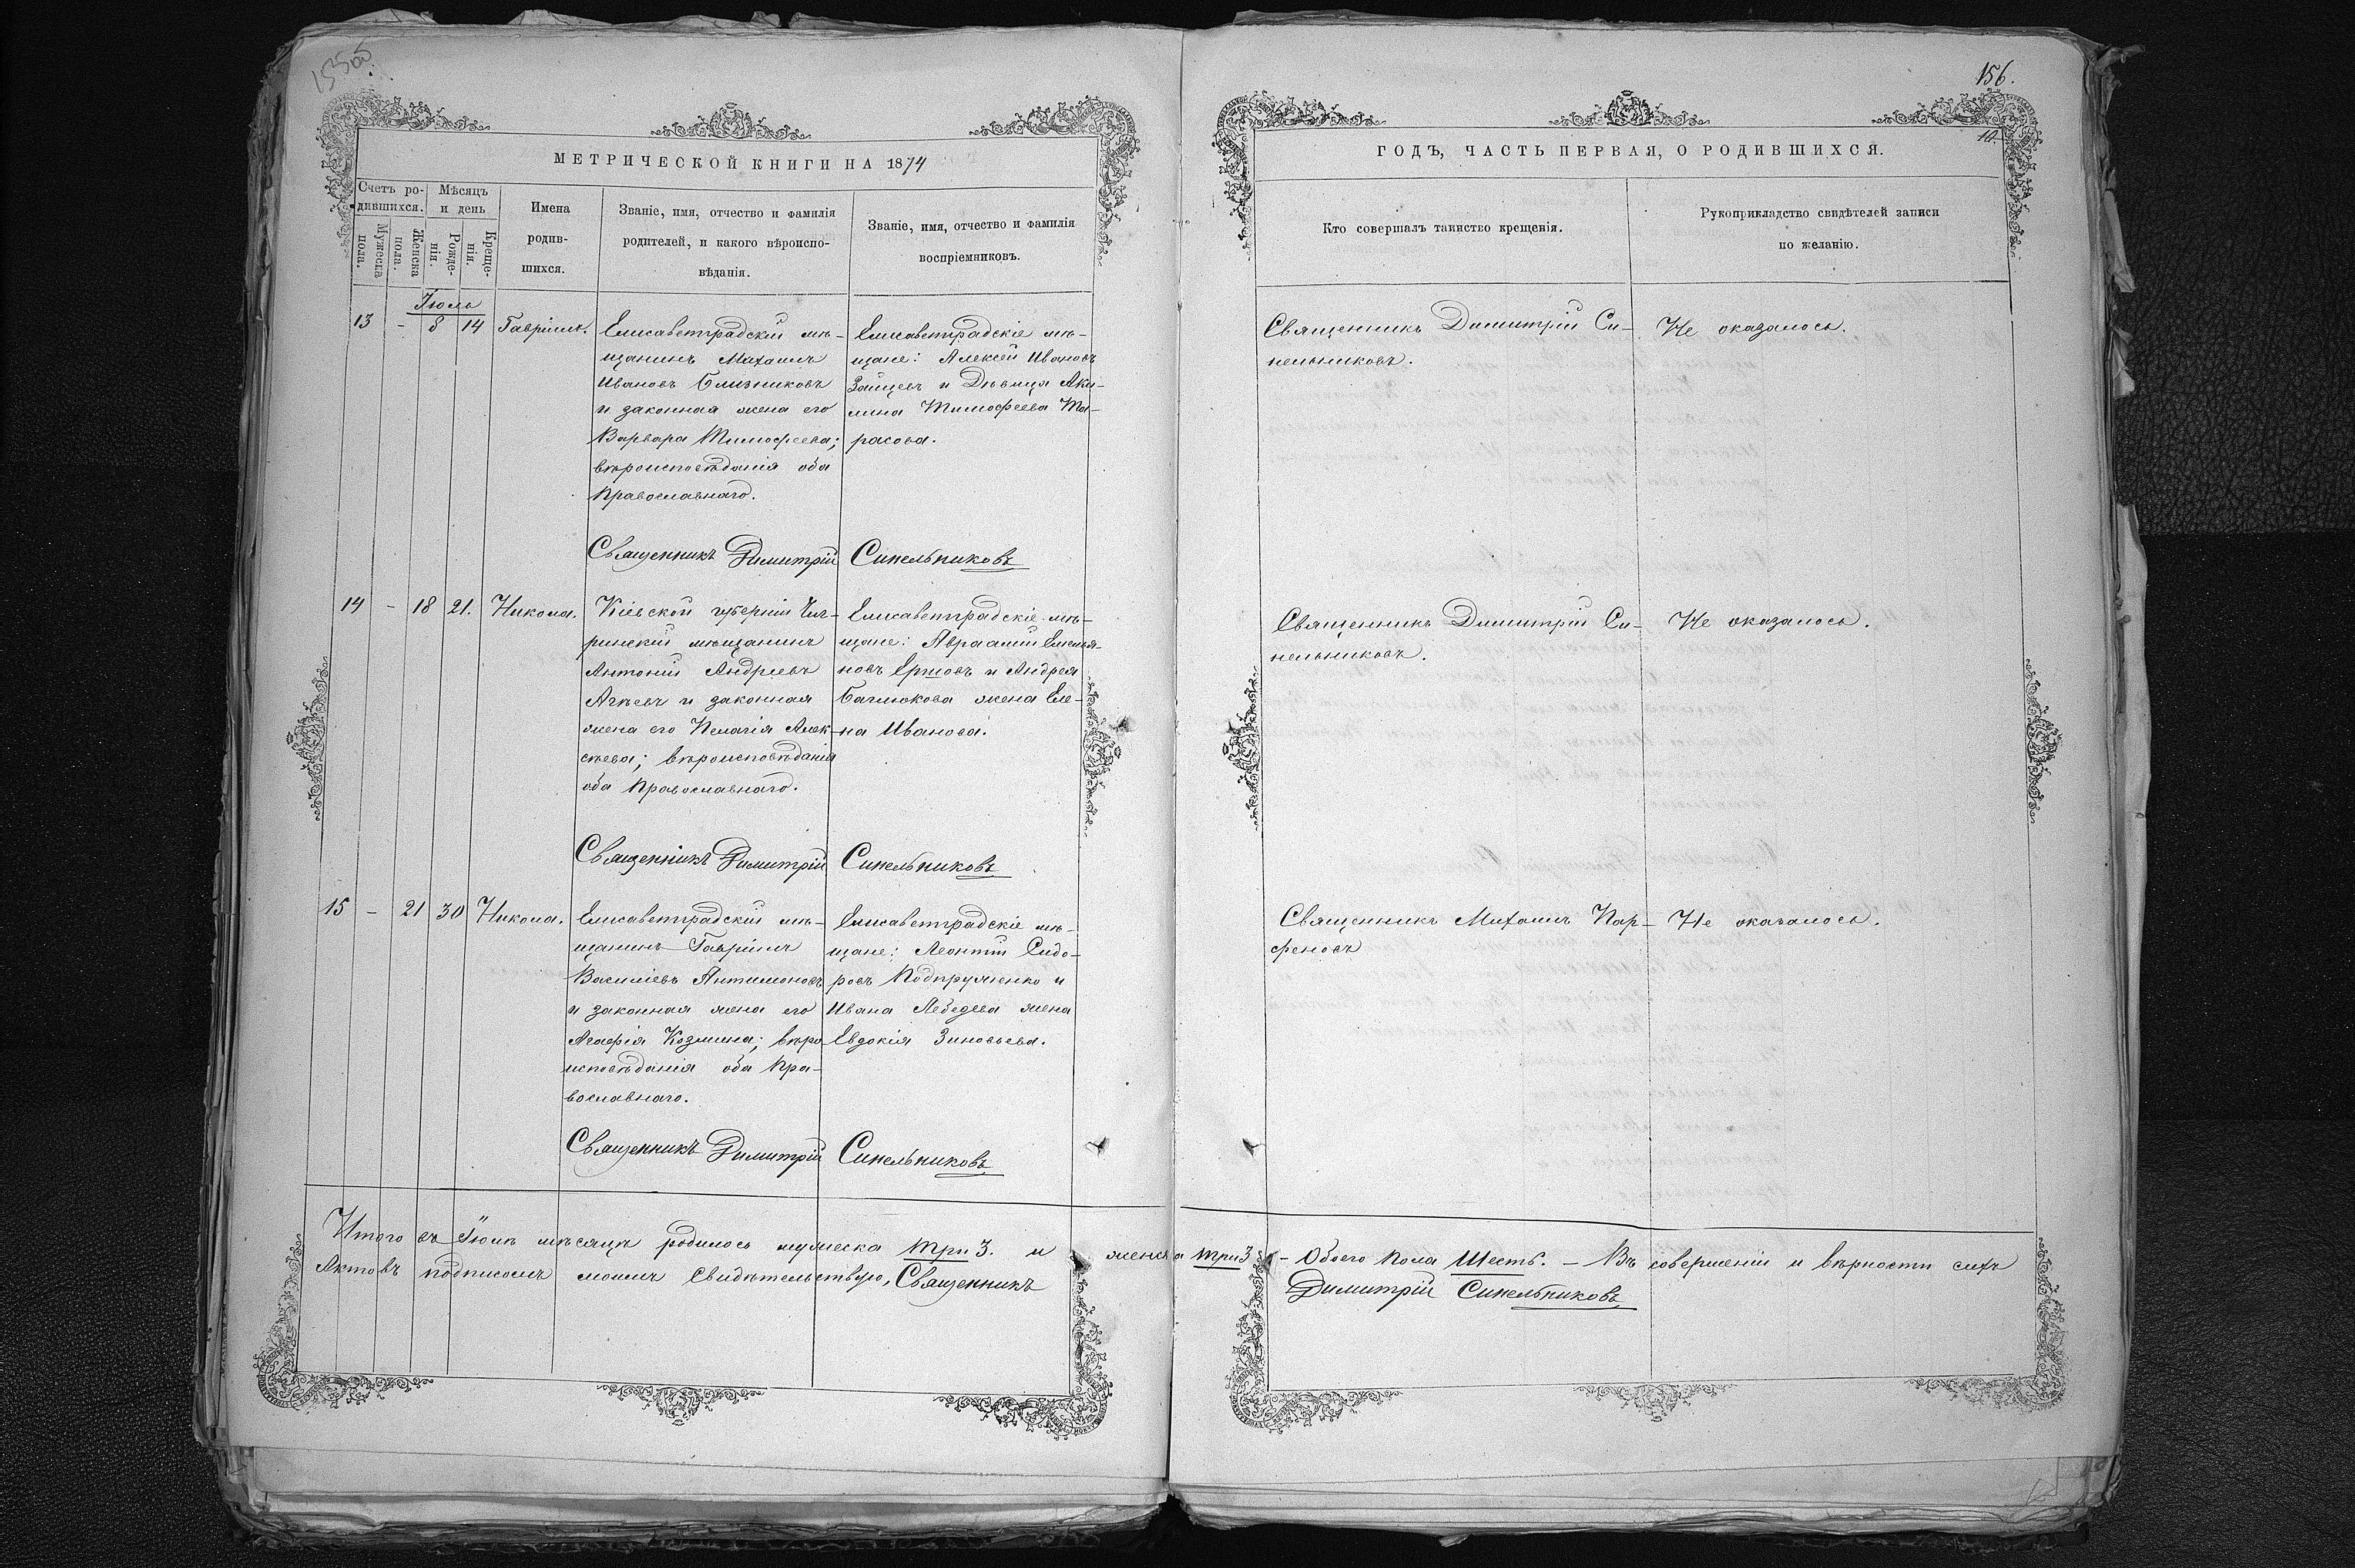 156.
МЕТРИЧЕСКОЙ КНИГИ НА 1874
ГОДЪ, ЧАСТЬ ПЕРВАЯ, О РОДИВШИХСЯ.
Счетъ ро-
дившихся.
Мужеска
пола.
Женска
пола.
Мѣсяцъ
и день
Рожде-
нія.
Креще-
нія.
Имена
родив-
шихся.
Званіе, имя, отчество и фамилія
родителей, и какого вѣроиспо-
вѣданія.
Званіе, имя, отчество и фамилія
воспріемниковъ.
Кто совершалъ таинство крещенія.
Рукоприкладство свидѣтелей записи
по желанію.
Іюль
13 - 8 14 Гавріилъ.
Елисаветградскій мѣ-
щанинъ Михаилъ
Ивановъ Близниковъ
и законная жена его
Варвара Тимофеева;
вѣроисповѣданія оба
Православнаго.
Елисаветградскіе мѣ-
щане: Алексей Ивановъ
Зайцевъ и Дѣвица Аки-
лина Тимофеева Та-
расова.
Священникъ Димитрій Си-
нельниковъ.
Не оказалось.
Священникъ Димитрій Синельниковъ
14 - 18 21. Никола.
Кіевской губерніи Чиг-
ринскій мѣщанинъ
Антоній Андреевъ
Агѣевъ и законная
жена его Пелагія Алек-
сѣева; вѣроисповѣданія
оба Православнаго.
Елисаветградскіе мѣ-
щане: Авраамій Емелья-
новъ Ершовъ и Андрея
жена Еле-
на Иванова.
Священникъ Димитрій Си-
нельниковъ.
Не оказалось.
Священникъ Димитрій Синельниковъ
15 - 21 30 Никола.
Елисаветградскій мѣ-
щанинъ Гавріилъ
Василіевъ Антимоновъ
и законная жена его
Агафія Козмина; вѣро-
исповѣданія оба Пра-
вославнаго.
Елисаветградскіе мѣ-
щане: Леонтій Сидо-
ровъ Подпруженко и
Ивана Лебедева жена
Евдокія Зиновьева.
Священникъ Михаилъ Пар-
феновъ
Не оказалось.
Священникъ Димитрій Синельниковъ
Итого въ Іюлѣ мѣсяцѣ родилось мужеска три 3. и женска три 3 - Обоего пола Шесть. - Въ совершеніи и вѣрности сихъ
Актовъ подписомъ моимъ Свидѣтельствую, Священникъ Димитрій Синельниковъ